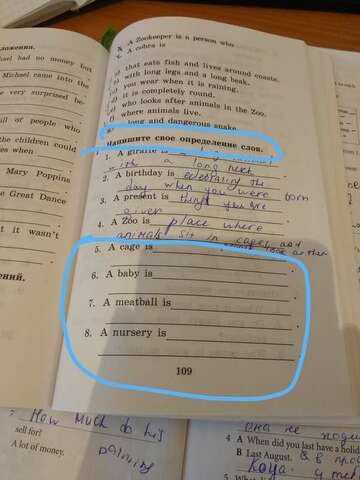 A Zookeeper is a person who
A cobra is
that eats fish and lives around coasts.
with long legs and a long beak.
you wear when it is raining.
it is completely round.
who looks after animals in the Zoo.
where animals live.
long and dangerous snake.
Напишите свое определение слов.
1. A giraffe is
with a long neck
2. A birthday is celebrating the
day when you were born
3. A present is things you are
given
4. A Zoo is place where
animals sit in cages and
5. A cage is
6. A baby is
7. A meatball is
8. A nursery is
109
had no money but
Michael came into the
very surprised be-
full of people who
the children could
when
Mary Poppins
Great Dance
it wasn't
How much do his
sell for?
A lot of money.
painting
она не
4 A When did you last have a holid
B Last August.